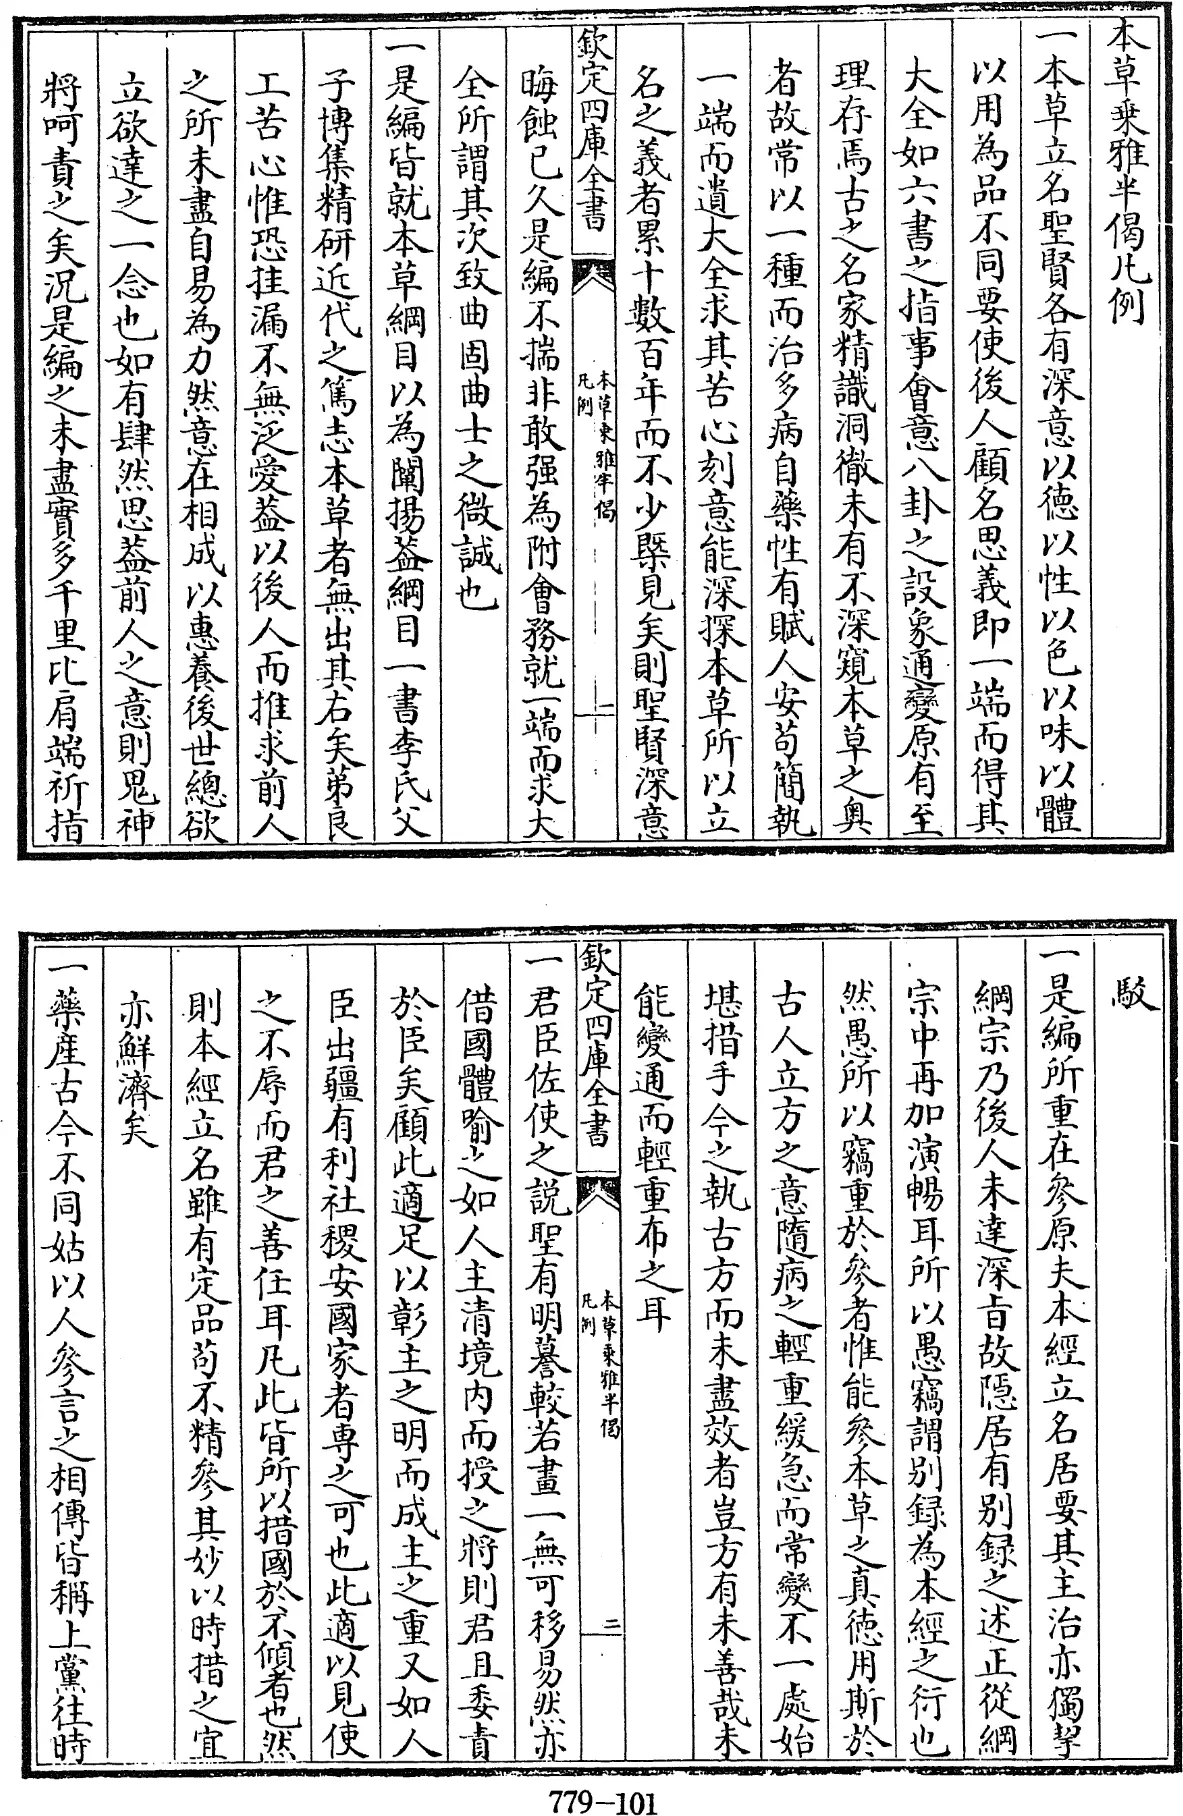 本草乘雅半偈凡例
一本草立名聖賢各有深意以德以性以色以味以體
以用為品不同要使後人顧名思義即一端而得其
大全如六書之指事會意八卦之設象通變原有至
理存焉古之名家精識洞徹未有不深窺本草之奥
者故常以一種而治多病自藥性有賦人安苟簡執
一端而遺大全求其苦心刻意能深探本草所以立
名之義者累十數百年而不少槩見矣則聖賢深意
欽定四庫全書
本草乘雅半偈
凡例
二
晦蝕已久是編不揣非敢强為附會務就一端而求大
全所謂其次致曲固曲士之微誠也
一是編皆就本草綱目以為闡揚葢綱目一書李氏父
子博集精研近代之篤志本草者無出其右矣第良
工苦心惟恐挂漏不無泛愛葢以後人而推求前人
之所未盡自易為力然意在相成以惠養後世總欲
立欲達之一念也如有肆然思葢前人之意則鬼神
將呵責之矣況是編之未盡實多千里比肩端祈指
駮
一是編所重在參原夫本經立名居要其主治亦獨挈
綱宗乃後人未達深旨故隱居有别録之述正從綱
宗中再加演暢耳所以愚竊謂别録為本經之衍也
然愚所以竊重於參者惟能參本草之真德用斯於
古人立方之意隨病之輕重緩急而常變不一處始
堪措手今之執古方而未盡效者豈方有未善哉未
能變通而輕重布之耳
欽定四庫全書
本草乘雅半偈
凡例
三
一君臣佐使之説聖有明謩較若畫一無可移易然亦
借國體喻之如人主清境内而授之將則君且委責
於臣矣顧此適足以彰主之明而成主之重又如人
臣出疆有利社稷安國家者專之可也此適以見使
之不辱而君之善任耳凡此皆所以措國於不傾者也然
則本經立名雖有定品苟不精參其妙以時措之宜
亦鮮濟矣
一藥産古今不同姑以人參言之相傳皆稱上黨往時
779-101